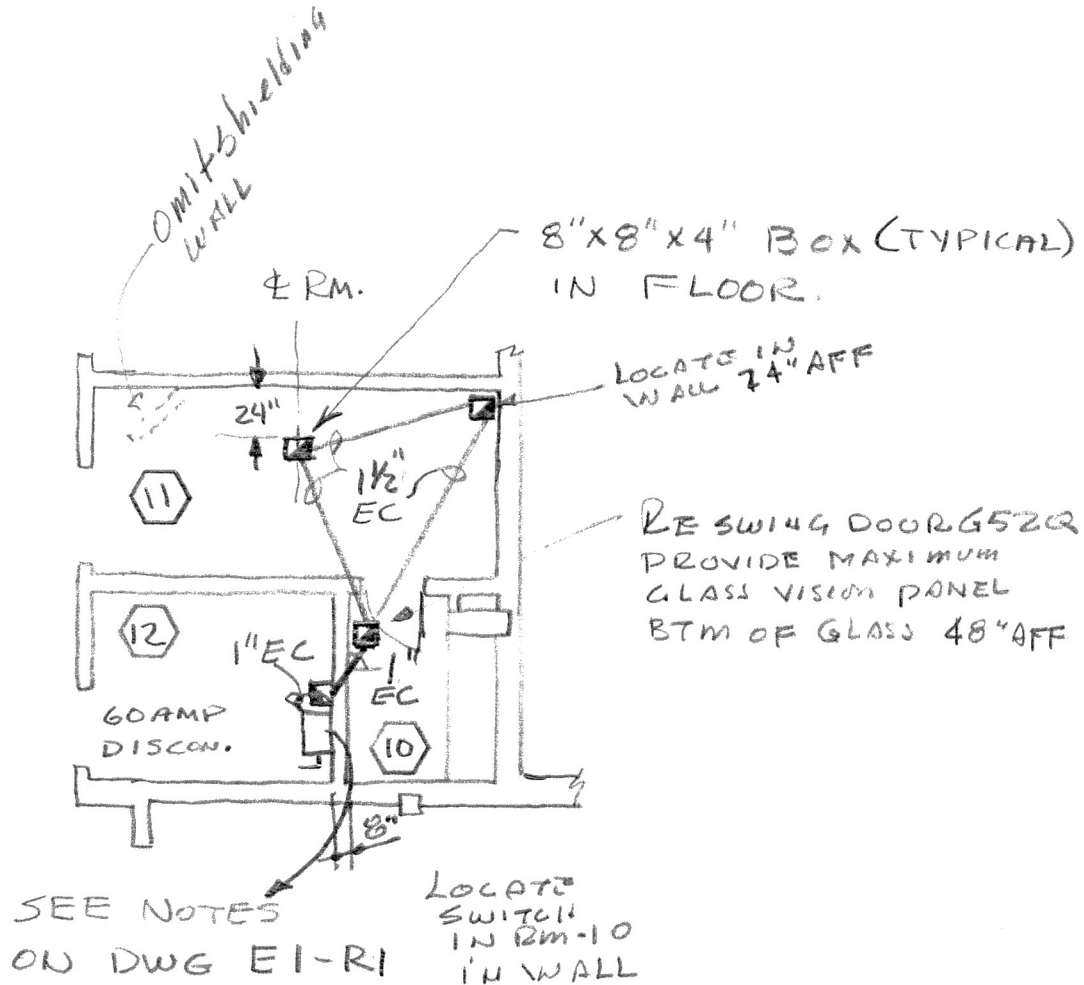 Omit shielding
WALL
8"X8"X4" BOX (TYPICAL)
IN FLOOR.
℄ RM.
LOCATE IN
WALL 24" AFF
24"
11
1½"
EC
RE SWING DOOR G52Q
PROVIDE MAXIMUM
GLASS VISION PANEL
BTM OF GLASS 48" AFF
12
1" EC
1"
EC
60 AMP
DISCON.
10
8"
SEE NOTES
ON DWG E1-R1
LOCATE
SWITCH
IN RM-10
IN WALL